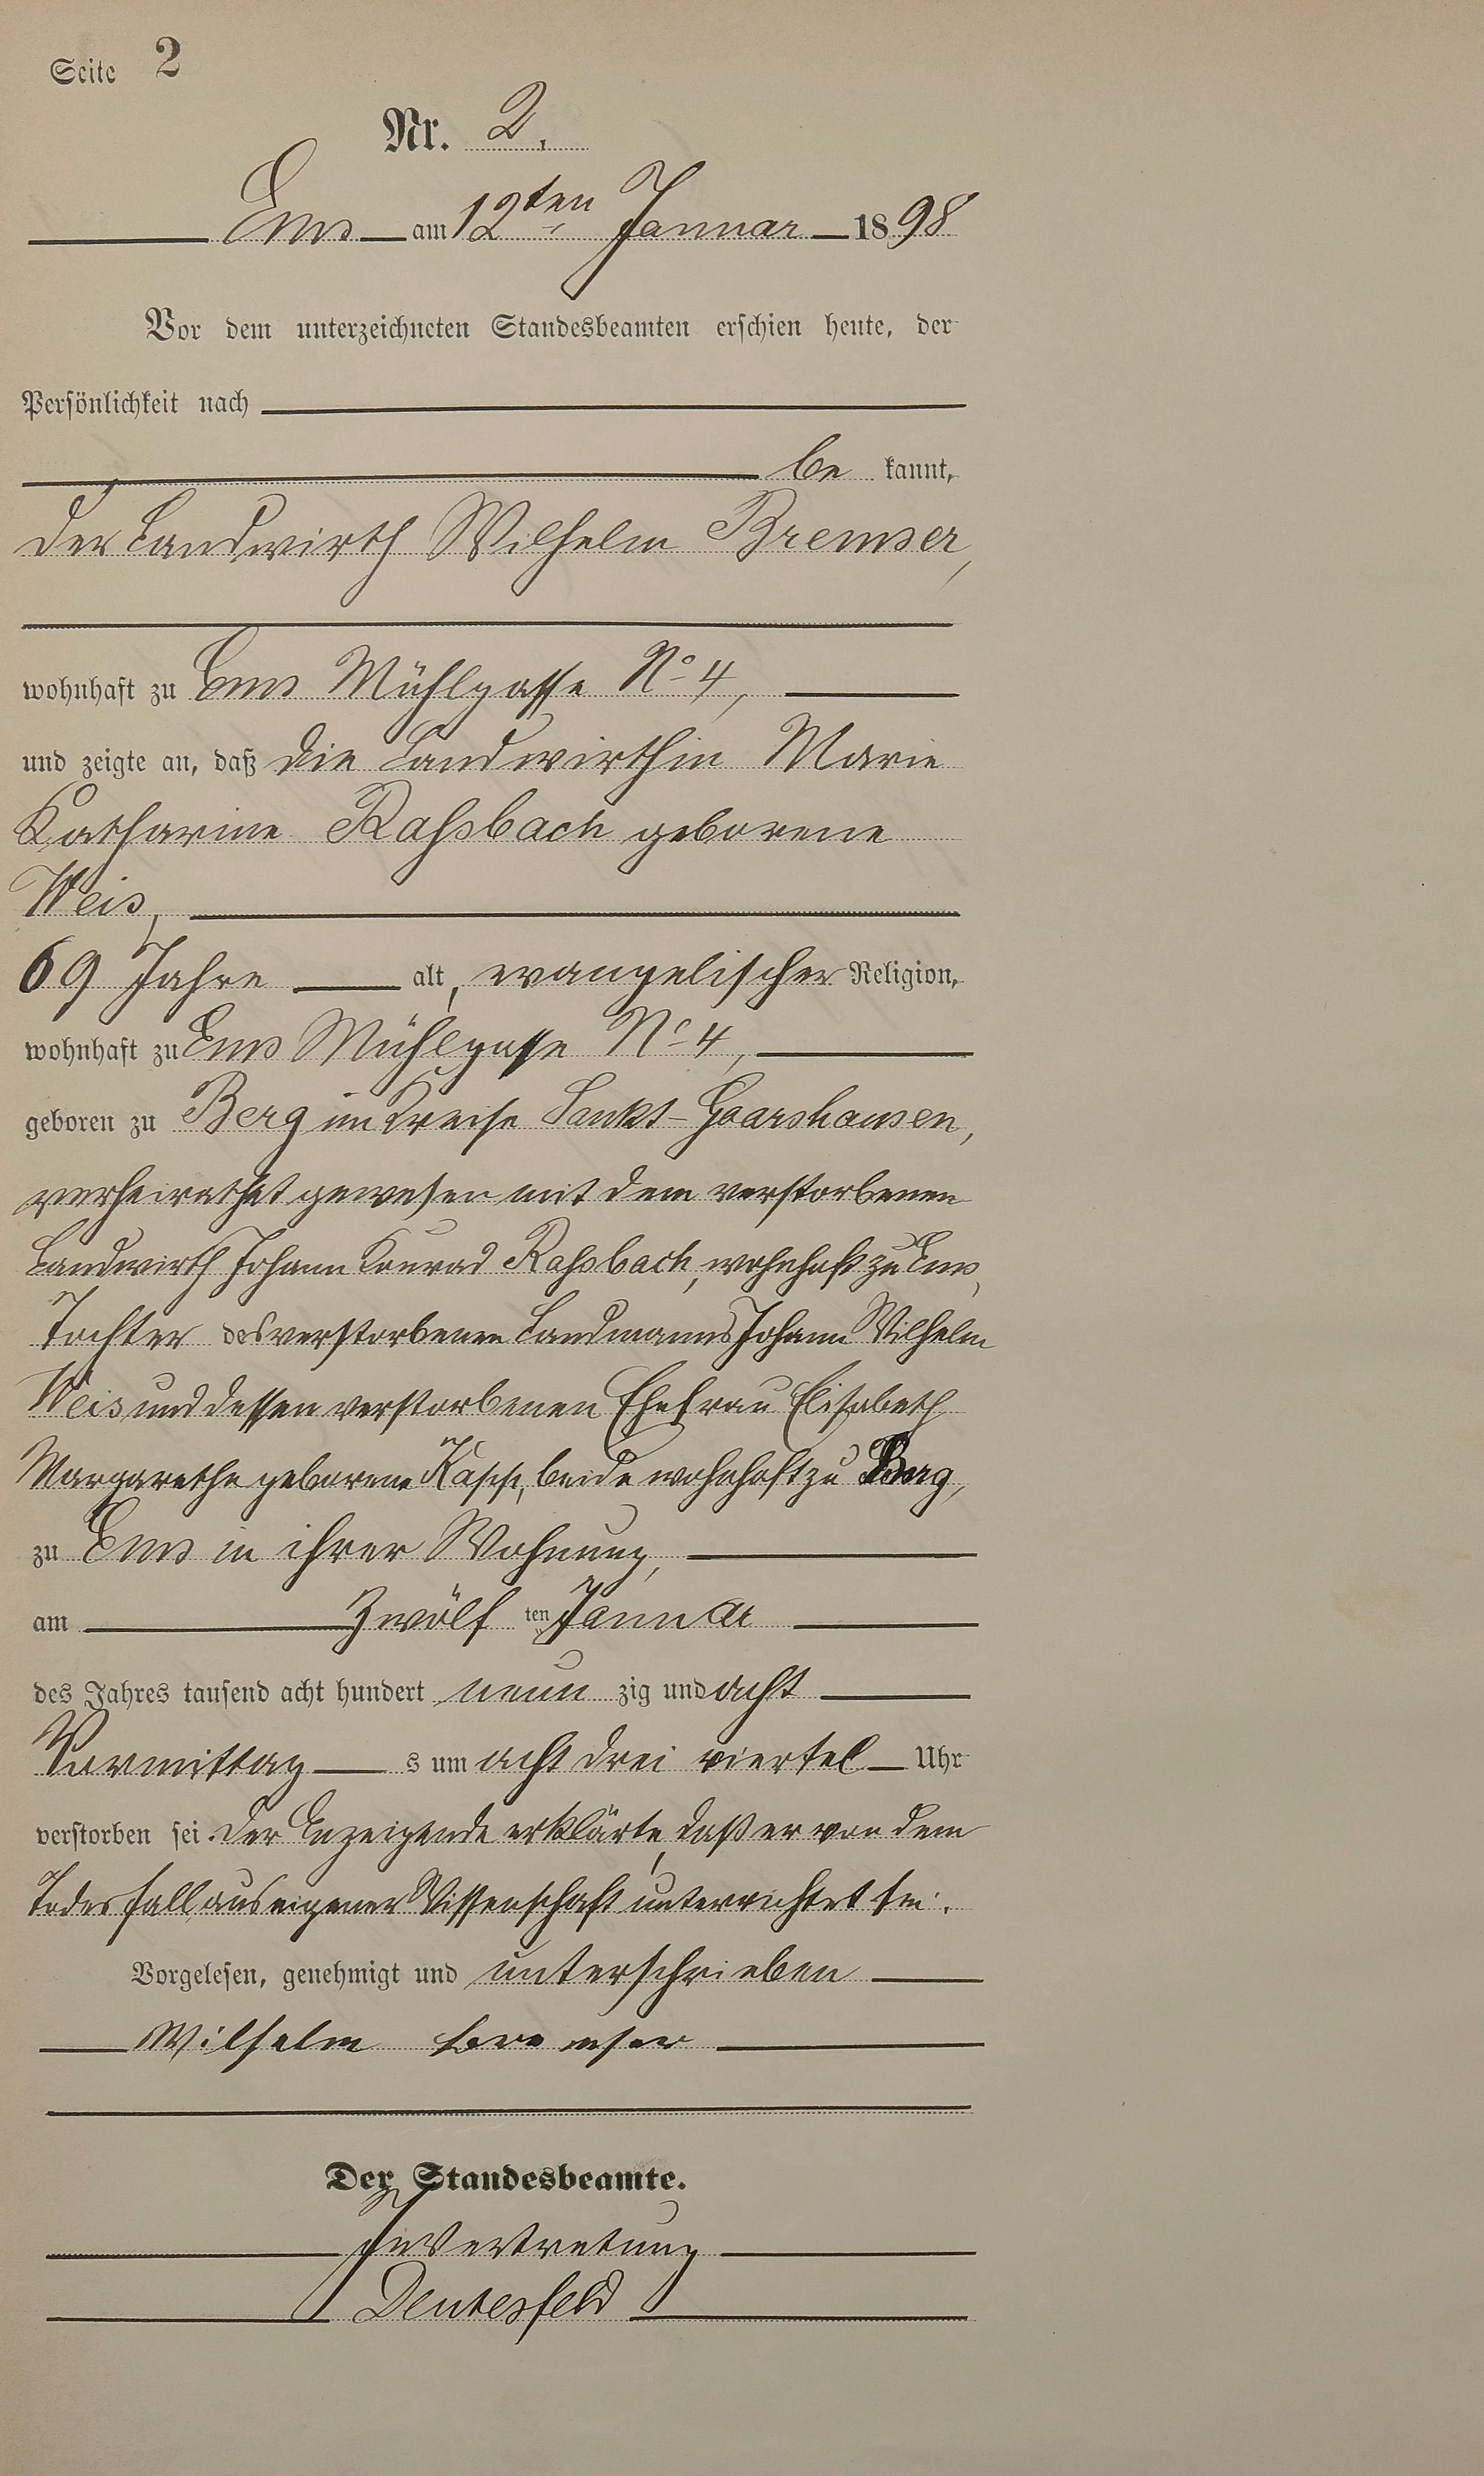 Seite 2
Nr. 2.
Ems am 12ten Januar 1898
Vor dem unterzeichneten Standesbeamten erschien heute, der
Persönlichkeit nach
be kannt,
der Landwirth Wilhelm Bremser,
wohnhaft zu Ems Mühlgasse No 4,
und zeigte an, daß die Landwirthin Marie
Katharine Rahsbach geborene
Weis,
69 Jahre alt, evangelischer Religion,
wohnhaft zu Ems Mühlgasse No 4,
geboren zu Berg im Kreise Sankt-Goarshausen,
verheirathet gewesen mit dem verstorbenen
Landwirth Johann Konrad Rahsbach, wohnhaft zu Ems,
Tochter des verstorbenen Landmanns Johann Wilhelm
Weis und dessen verstorbenen Ehefrau Elisabeth
Margarethe geborene Kapp, beide wohnhaft zu Berg,
zu Ems in ihrer Wohnung,
am Zwölf ten Januar
des Jahres tausend acht hundert neun zig und acht
Vormittag s um acht drei viertel Uhr
verstorben sei. Der Anzeigende erklärte, daß er von dem
Todesfall aus eigener Wissenschaft unterrichtet sei.
Vorgelesen, genehmigt und unterschrieben
Wilhelm bremser
Der Standesbeamte.
In Vertretung
Deutesfeld